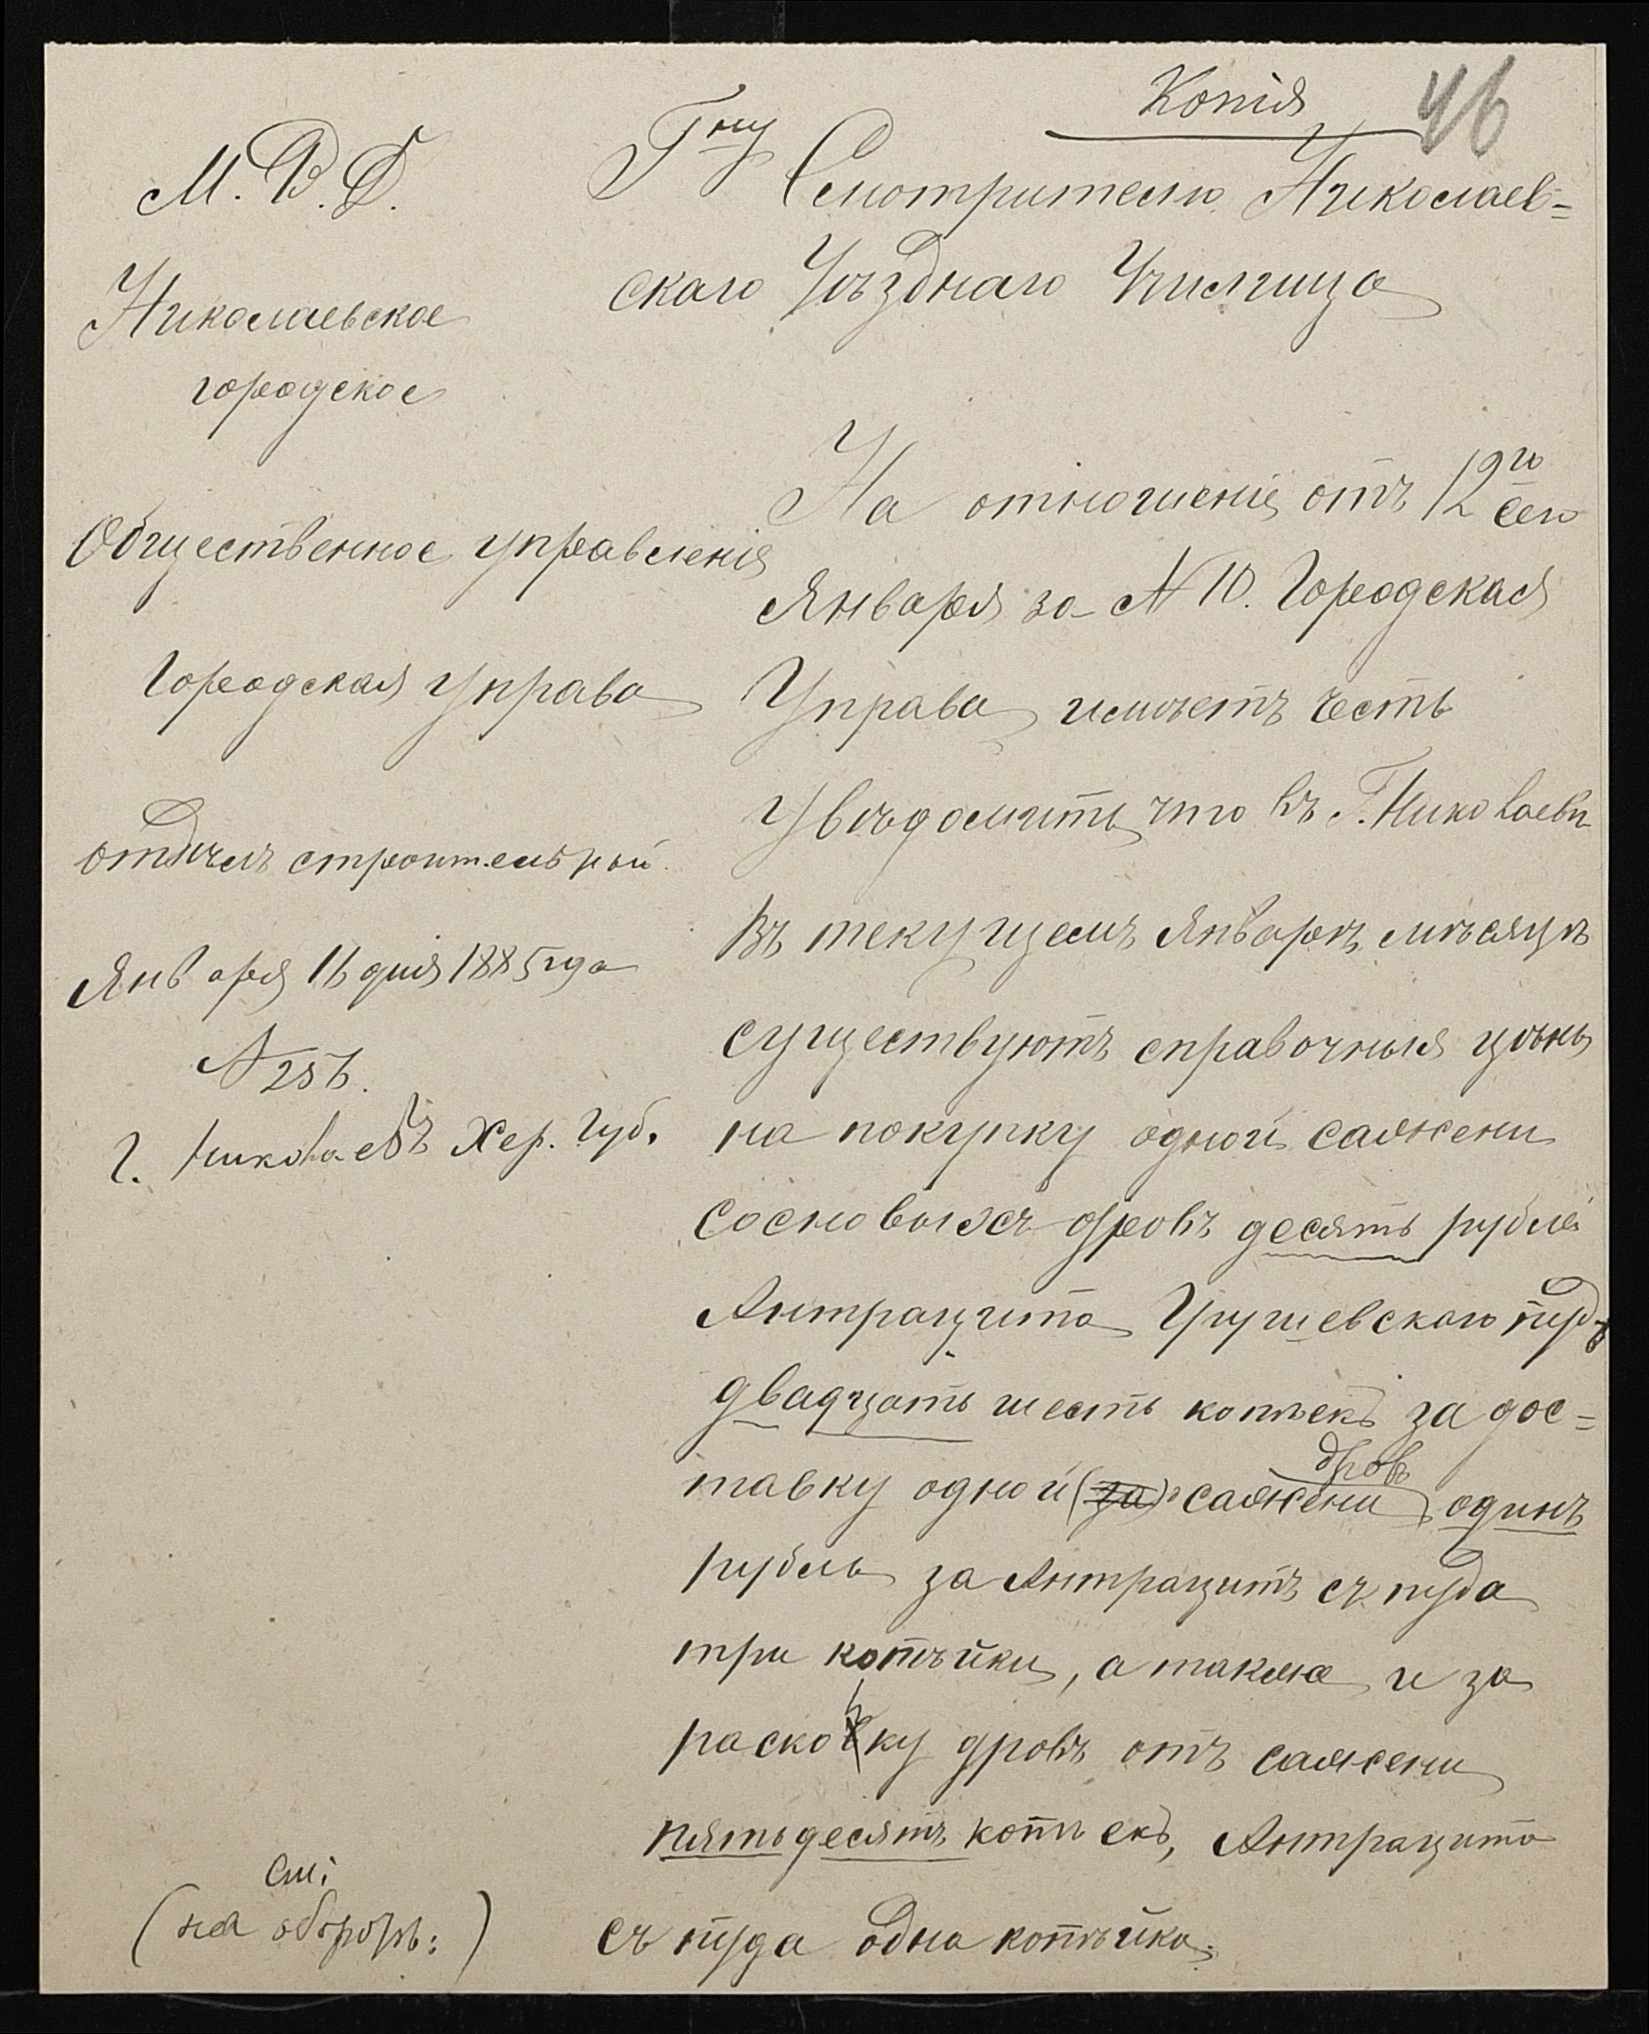 Копія
46
М. В. Д.
Николаевское
городское
Общественное управленія
Городская управа
отдѣлъ строительный
Января 16 дня 1885 года
№ 256.
г. Николаевъ Хер. Губ.
Гну Смотрителю Николаев=
скаго Уѣзднаго Училища
На отношеніе отъ 12го сего
Января за № 10. Городская
Управа имѣетъ честь
Увѣдомить что въ Г. Николаевѣ
Въ текущемъ Январѣ мѣсяцѣ
существуютъ справочныя цѣны
на покупку одной сажени
сосновыхъ дровъ десять рублей
Антрацита Грушевскаго пудъ
двадцать шесть копѣекъ за дос=
тавку одной (за) сажени дровъ одинъ
рубль за Антрацитъ съ пуда
три копѣйки, а также и за
расколку дровъ отъ сажени
пятьдесятъ копѣекъ, Антрацита
съ пуда одна копѣйка.
См:
(на оборотѣ:)